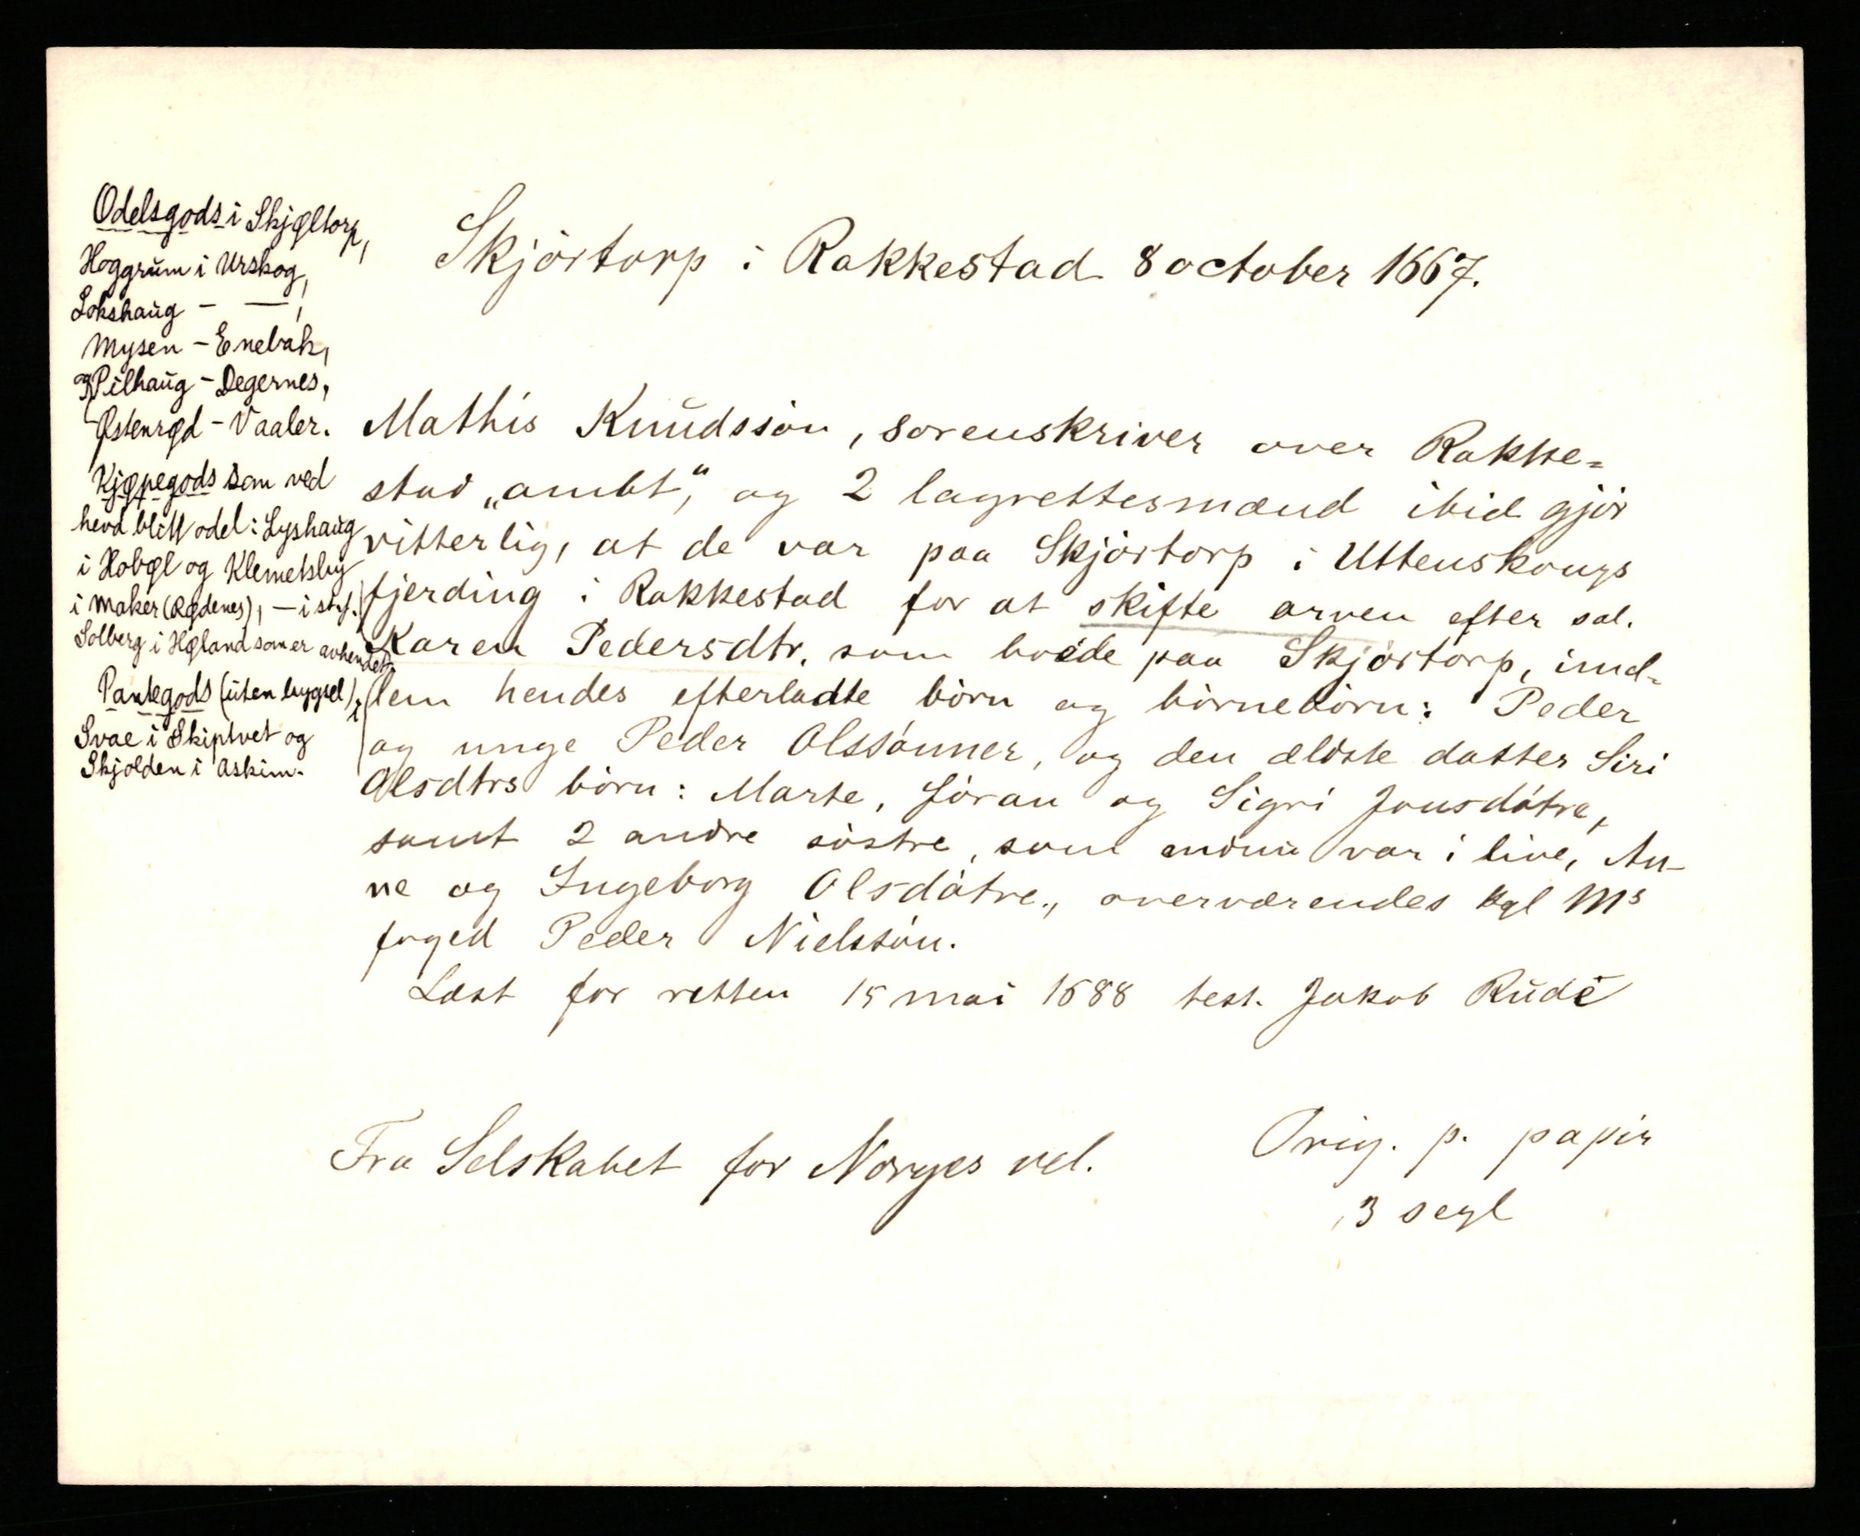 Odelsgods i Skjøltorp,
Hoggrum i Urskog,
Lokshaug - — ,
Mysen - Enebak,
og Pilhaug - Degernes,
Østenrød - Vaaler.
Kjøpegods som ved
hevd blitt odel: Lyshaug
i Hobøl og Klemetsby
i Maker (Rødenes), — i st. f.
Solberg i Høland som er avhendet.
Pantegods (uten bygsel) i
Svae i Skiptvet og
Skjolden i Askim.
Skjörtorp i Rakkestad 8 october 1667.
Mathis Knudssön, sorenskriver over Rakke=
stad „ambt“, og 2 lagrettesmænd ibid gjör
vitterlig, at de var paa Skjörtorp i Uttenskougs
fjerding i Rakkestad for at skifte arven efter sal.
Karen Pedersdtr. som boede paa Skjörtorp, imel=
lem hendes efterladte börn og börnebörn: Peder
og unge Peder Olssönner, og den ældste datter Siri
Olsdtrs börn: Marte, Jöran og Sigri Jonsdötre,
samt 2 andre söstre, som endnu var i live, An-
ne og Ingeborg Olsdötre., overværendes kgl Ms
foged Peder Nielssön.
Læst for retten 15 mai 1688 test. Jakob Rude
Fra Selskabet for Norges vel.
Orig. p. papir
3 segl